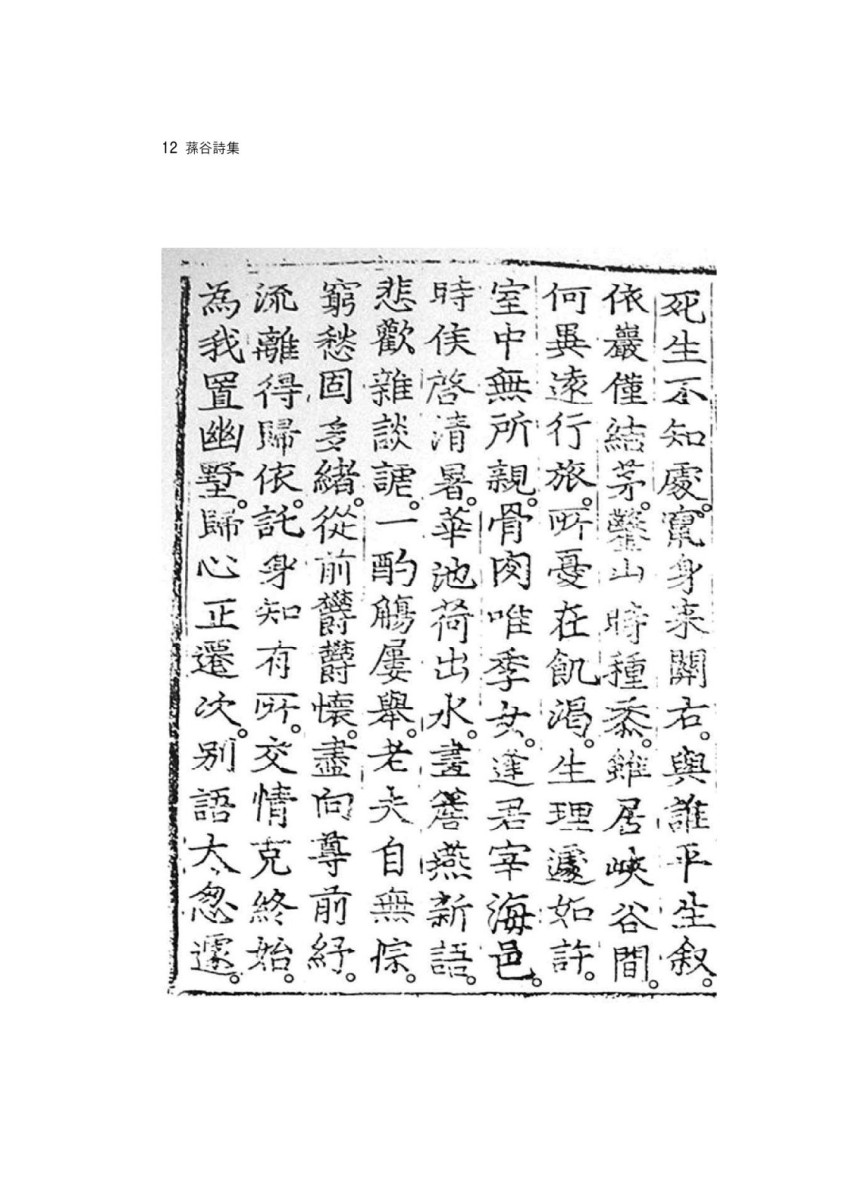 12 蓀谷詩集
死生不知處。竄身来關右。與誰平生叙。
依巖僅結茅。鑿山時種黍。雖居峽谷間。
何異遠行旅。所憂在飢渴。生理遽如許。
室中無所親。骨肉唯季女。逢君宰海邑。
時俟啓清暑。華池荷出水。畫簷燕新語。
悲歡雜談謔。一酌觴屢舉。老夫自無悰。
窮愁固多緖。從前欝欝懷。盡向尊前紓。
流離得歸依。託身知有所。交情克終始。
為我置幽墅。歸心正還次。別語太怱遽。